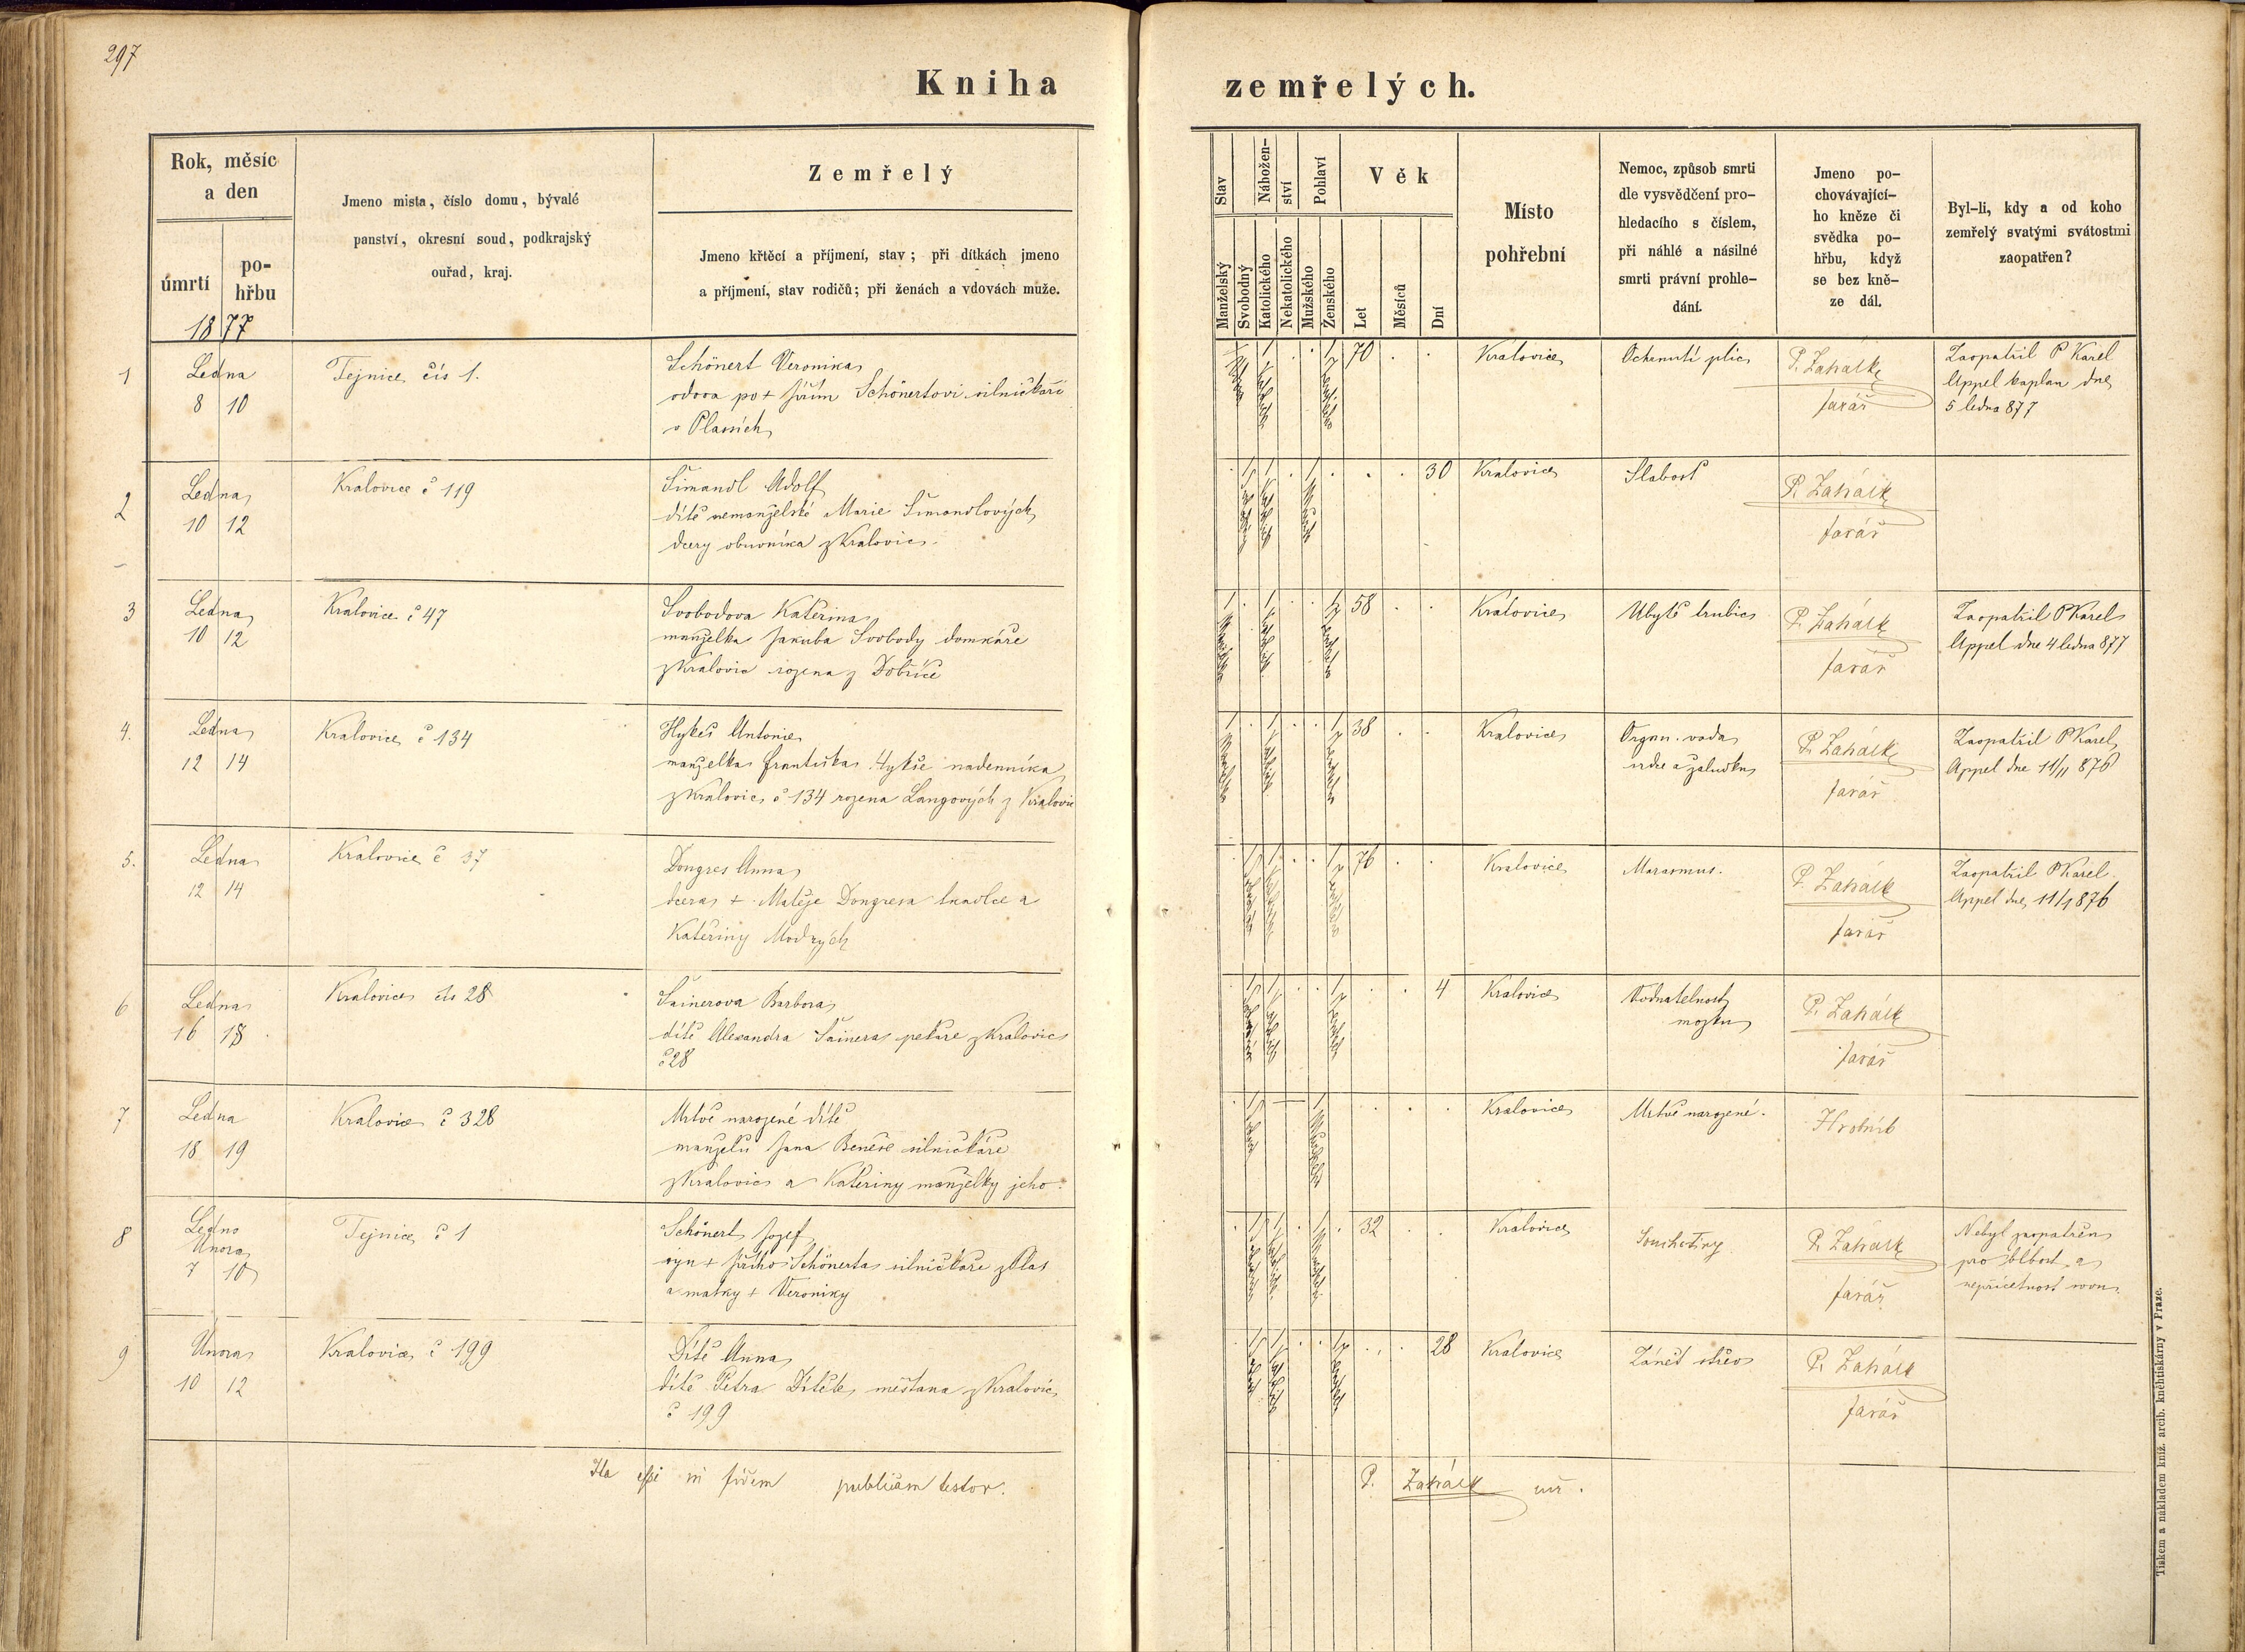 297
Kniha zemřelých.
Rok, měsíc
a den
úmrtí
po-
hřbu
1877
Jmeno mista, číslo domu, bývalé
panství, okresní soud, podkrajský
ouřad, kraj.
Zemřelý
Jmeno křtěcí a příjmení, stav; při dítkách jmeno
a příjmení, stav rodičů; při ženách a vdovách muže.
Stav
Manželský
Svobodný
Nábožen-
ství
Katolického
Nekatolického
Pohlaví
Mužského
Ženského
Věk
Let
Měsíců
Dní
Místo
pohřební
Nemoc, způsob smrti
dle vysvědčení pro-
hledacího s číslem,
při náhlé a násilné
smrti právní prohle-
dání.
Jmeno po-
chovávající-
ho kněze či
svědka po-
hřbu, když
se bez kně-
ze dál.
Byl-li, kdy a od koho
zemřelý svatými svátostmi
zaopatřen?
1
Ledna
8 10
Tejnice čís 1.
Schönert Veronika
vdova po + Jiřím Schönertovi silničkáři
v Plasích
70
Kralovice
Ochrnutí plic
P. Zahálk
farář
Zaopatřil P Karel
Appel kaplan dne
5 ledna 877
2
Ledna
10 12
Kralovice č 119
Šimandl Adolf
dítě nemanželské Marie Šimandlových
dcery obuvníka z Kralovic
30
Kralovice
Slabost
P. Zahálk
farář
3
Ledna
10 12
Kralovice č 47
Svobodova Kateřina
manželka Jakuba Svobody domkáře
z Kralovic rozena z Dobříče
58
Kralovice
Ubytě trubic
P. Zahálk
farář
Zaopatřil P Karel
Appel dne 4 ledna 877
4.
Ledna
12 14
Kralovice č 134
Hykeš Antonie
manželka Františka Hykše nadenníka
z Kralovic č 134 rozena Langových z Kralovic
38
Kralovice
Organ. vada
srdce a žaludku
P. Zahálk
farář
Zaopatřil P Karel
Appel dne 11/11 876
5.
Ledna
12 14
Kralovice č 37
Dongres Anna
dcera + Matěje Dongresa tkadlce a
Kateřiny Modrých
76
Kralovice
Marasmus.
P. Zahálk
farář
Zaopatřil P Karel
Appel dne 11/1 876
6
Ledna
16 18
Kralovice čís 28
Šainerova Barbora
dítě Alexandra Šainera pekaře z Kralovic
č 28
4
Kralovice
Vodnatelnost
mozku
P. Zahálk
farář
7
Ledna
18 19
Kralovice č 328
Mrtvě narozené dítě
manželů Jana Beneše silničkáře
z Kralovic a Kateřiny manželky jeho.
Kralovice
Mrtvě narozené.
Hrobník
8
Února
7 10
Tejnice č 1
Schönert Josef
syn + Jiřího Schönerta silničkáře z Plas
a matky + Veroniky
32
Kralovice
Souchotiny
P. Zahálk
farář
Nebyl zaopatřen
pro blbost a
nepříčetnost
9
Února
10 12
Kralovice č 199
Dítě Anna
dítě Petra Dítěte měšťana z Kralovic
č 199
28
Kralovice
Zánět střev
P. Zahálk
farář
Ita esse in fidem publicam testor.
P. Zahálk
Tiskem a nákladem kníž. arcib. kněhtiskárny v Praze.